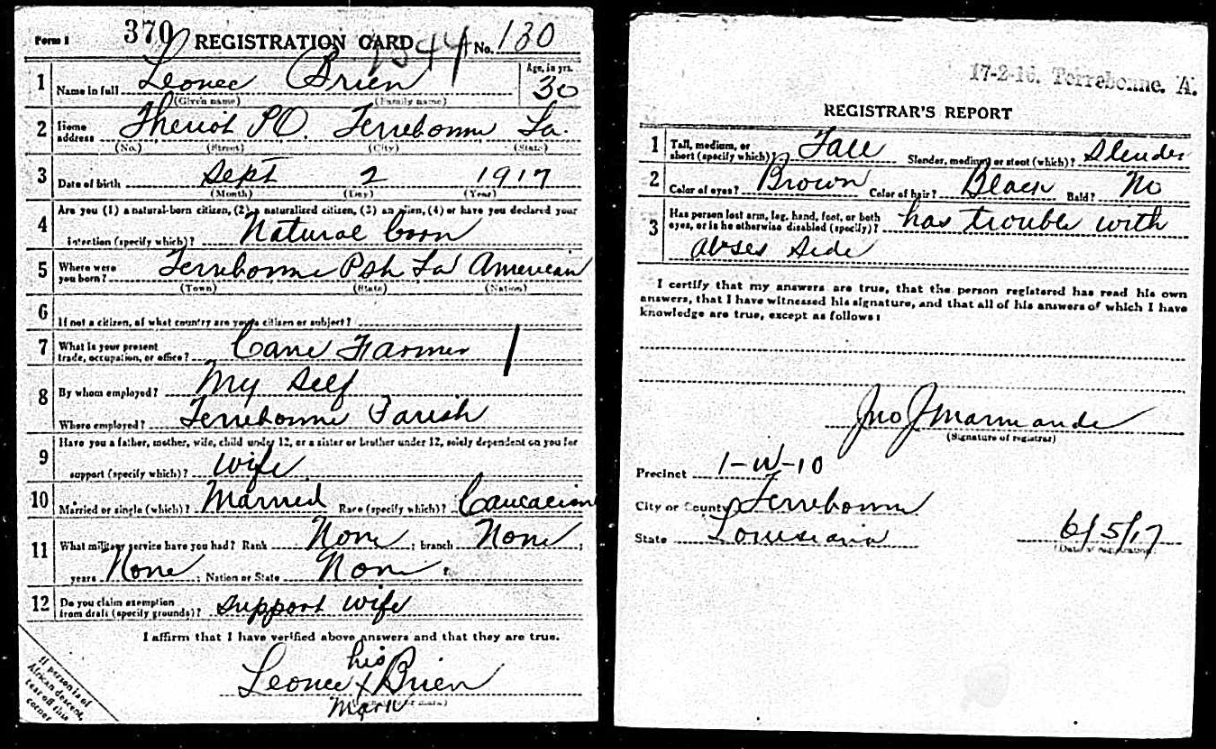 Form 1 370 REGISTRATION CARD 1544 No. 130
1 Name in full Leonce Brien Age, in yrs. 30
(Given name) (Family name)
2 Home address Theriot PO. Terrebonne La.
(No.) (Street) (City) (State)
3 Date of birth Sept 2 1917
(Month) (Day) (Year)
4 Are you (1) a natural-born citizen, (2) a naturalized citizen, (3) an alien, (4) or have you declared your
intention (specify which)? Natural born
5 Where were you born? Terrebonne Psh La American
(Town) (State) (Nation)
6 If not a citizen, of what country are you a citizen or subject?
7 What is your present trade, occupation, or office? Cane Farmer
8 By whom employed? My Self
Where employed? Terrebonne Parish
9 Have you a father, mother, wife, child under 12, or a sister or brother under 12, solely dependent on you for
support (specify which)? Wife
10 Married or single (which)? Married Race (specify which)? Caucasian
11 What military service have you had? Rank None ; branch None ;
years None ; Nation or State None
12 Do you claim exemption from draft (specify grounds)? Support Wife
I affirm that I have verified above answers and that they are true.
his
Leonce X Brien
mark
If person is of
African descent,
tear off this
corner
17-2-16. Terrebonne. A.
REGISTRAR'S REPORT
1 Tall, medium, or short (specify which)? Tall Slender, medium, or stout (which)? Slender
2 Color of eyes? Brown Color of hair? Black Bald? No
3 Has person lost arm, leg, hand, foot, or both eyes, or is he otherwise disabled (specify)? has trouble with
Side
I certify that my answers are true, that the person registered has read his own
answers, that I have witnessed his signature, and that all of his answers of which I have
knowledge are true, except as follows:
Jno J Marmande
(Signature of registrar)
Precinct 1-W-10
City or County Terrebonne
State Louisiana 6/5/17
(Date of registration)